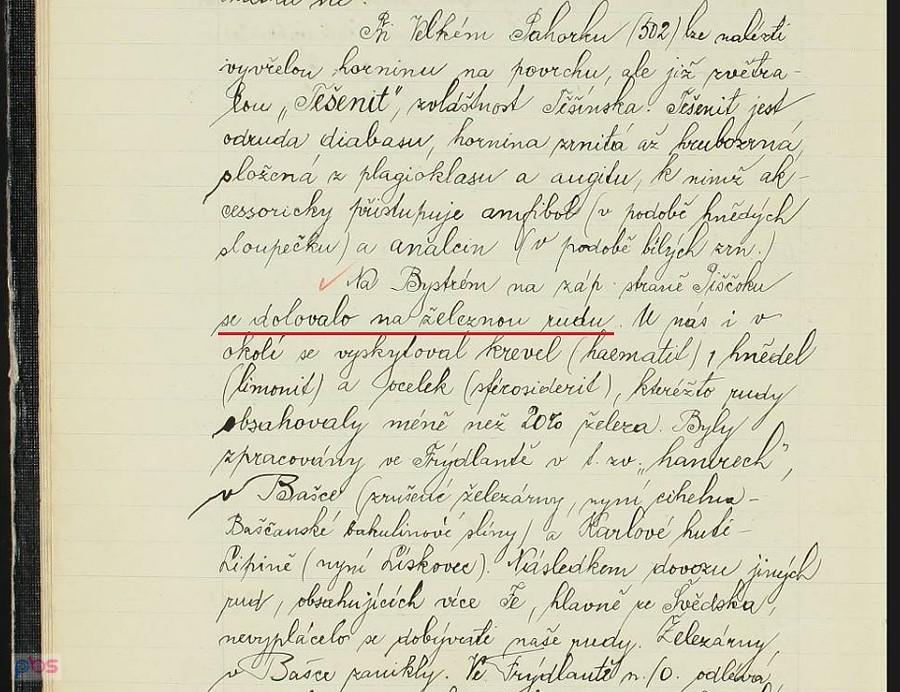 Při Velkém Pahorku (502) lze nalézti
vyvřelou horninu na povrchu, ale již zvětra-
lou „Těšenit", zvláštnost Těšínska. Těšenit jest
odruda diabasu, hornina zrnitá až hrubozrná,
složená z plagioklasu a augitu, k nimž ak-
cessoricky přistupuje amfibol (v podobě hnědých
sloupečku) a analcin (v podobě bílých zrn.)
Na Bystrém na záp. straně Piščoku
se dolovalo na železnou rudu. U nás i v
okolí se vyskytoval krevel (haematit), hnědel
(limonit) a ocelek (sférosiderit), kteréžto rudy
obsahovaly méně než 20% železa. Byly
zpracovány ve Frýdlantě v t. zv. „hamrech",
v Bašce (zrušené železárny, nyní cihelna -
Baščanské bakulinové slíny) a Karlové huti -
Lipině (nyní Lískovec). Následkem dovozu jiných
rud, obsahujících více Fe, hlavně ze Švédska,
nevyplácelo se dobývati naše rudy. Železárny
v Bašce zanikly. Ve Frýdlantě n./O. odlévá
pbs